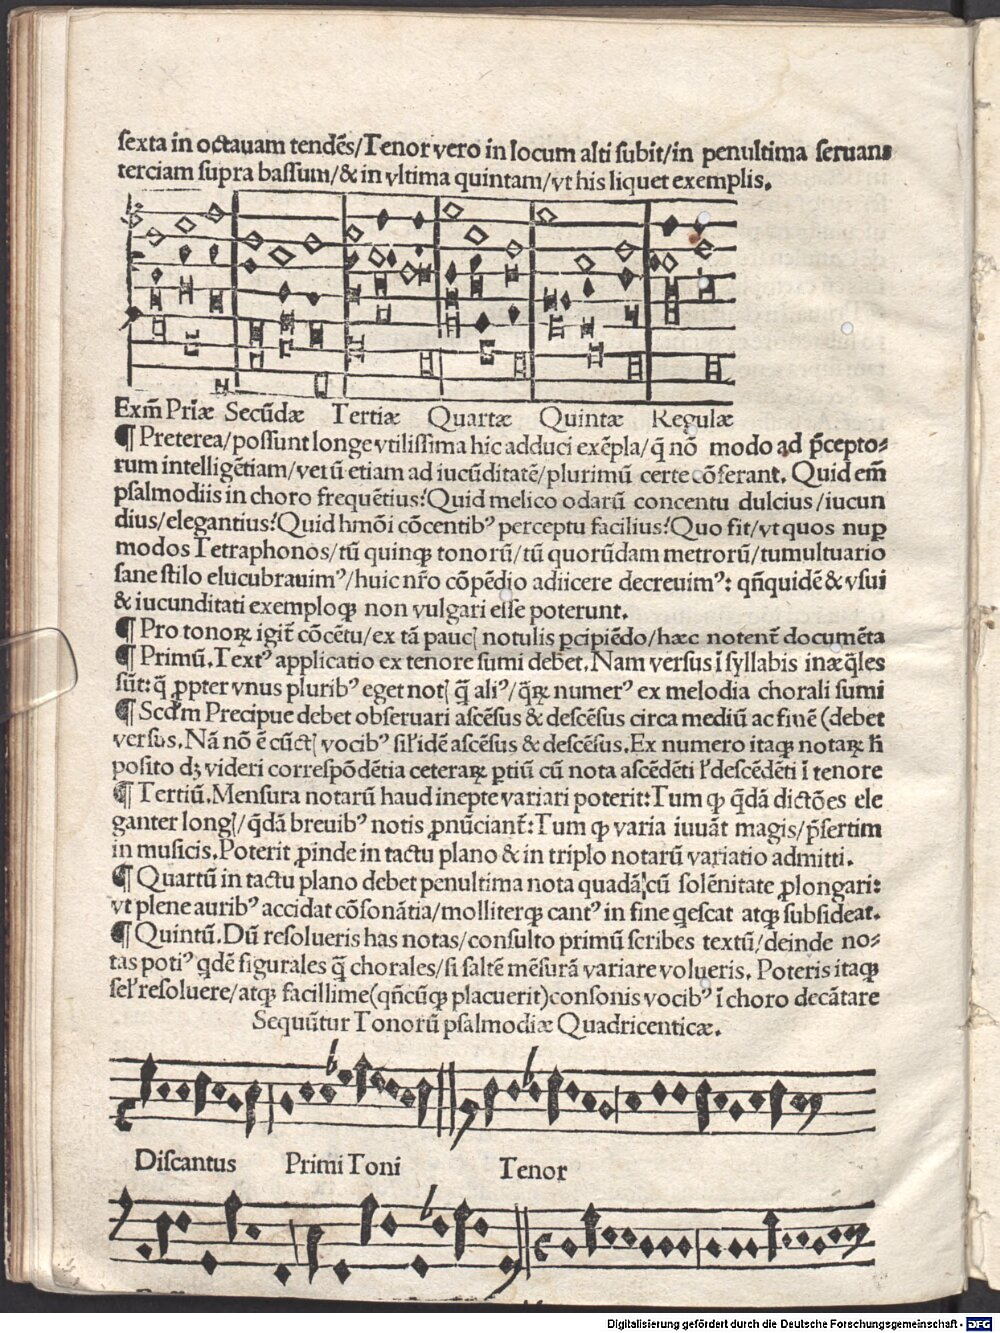 sexta in octauam tendẽs/Tenor vero in locum alti subit/in penultima seruans
terciam supra bassum/& in vltima quintam/vt his liquet exemplis.
Exm̃ Prĩæ Secũdæ Tertiæ Quartæ Quintæ Regulæ
¶ Preterea/possunt longe vtilissima hic adduci exẽpla/q̃ nõ modo ad p̃cepto⸗
rum intelligẽtiam/verũ etiam ad iucũditatẽ/plurimũ certe cõferant. Quid em̃
psalmodiis in choro frequẽtius? Quid melico odarũ concentu dulcius/iucun
dius/elegantius? Quid hmõi cõcentibꝰ perceptu facilius? Quo fit/vt quos nuꝑ
modos Tetraphonos/tũ quinqꝫ tonorũ/tũ quorũdam metrorũ/tumultuario
sane stilo elucubrauimꝰ/huic nr̃o cõpẽdio adiicere decreuimꝰ: qñquidẽ & vsui
& iucunditati exemploqꝫ non vulgari esse poterunt.
¶ Pro tonoꝝ igit̃ cõcẽtu/ex tã paucꝭ notulis ꝑcipiẽdo/hæc notent̃ documẽta
¶ Primũ. Textꝰ applicatio ex tenore sumi debet. Nam versus ĩ syllabis inæq̃les
sũt: q̃ ꝓpter vnus pluribꝰ eget notꝭ q̃ aliꝰ/q̃ꝝ numerꝰ ex melodia chorali sumi
¶ Scd'm Precipue debet obseruari ascẽsus & descẽsus circa mediũ ac finẽ (debet
versus. Nã nõ ẽ cũctꝭ vocibꝰ sil'idẽ ascẽsus & descẽsus. Ex numero itaqꝫ notaꝝ h̃
posito dꝫ videri correspõdẽtia ceteraꝝ ꝑtiũ cũ nota ascẽdẽti l'descẽdẽti ĩ tenore
¶ Tertiũ. Mensura notarũ haud inepte variari poterit: Tum ꝙ q̃dã dictões ele
ganter longꝭ/q̃dã breuibꝰ notis ꝓnũciant̃: Tum ꝙ varia iuuãt magis/p̃sertim
in musicis. Poterit ꝓinde in tactu plano & in triplo notarũ variatio admitti.
¶ Quartũ in tactu plano debet penultima nota quadã cũ solẽnitate ꝓlongari:
vt plene auribꝰ accidat cõsonãtia/molliterqꝫ cantꝰ in fine q̃escat atqꝫ subsideat.
¶ Quintũ. Dũ resolueris has notas/consulto primũ scribes textũ/deinde no⸗
tas potiꝰ q̃dẽ figurales q̃ chorales/si saltẽ mẽsurã variare volueris. Poteris itaqꝫ
sel'resoluere/atqꝫ facillime (qñcũqꝫ placuerit) consonis vocibꝰ ĩ choro decãtare
Sequũtur Tonorũ psalmodiæ Quadricenticæ.
Discantus Primi Toni Tenor
Digitalisierung gefördert durch die Deutsche Forschungsgemeinschaft - DFG